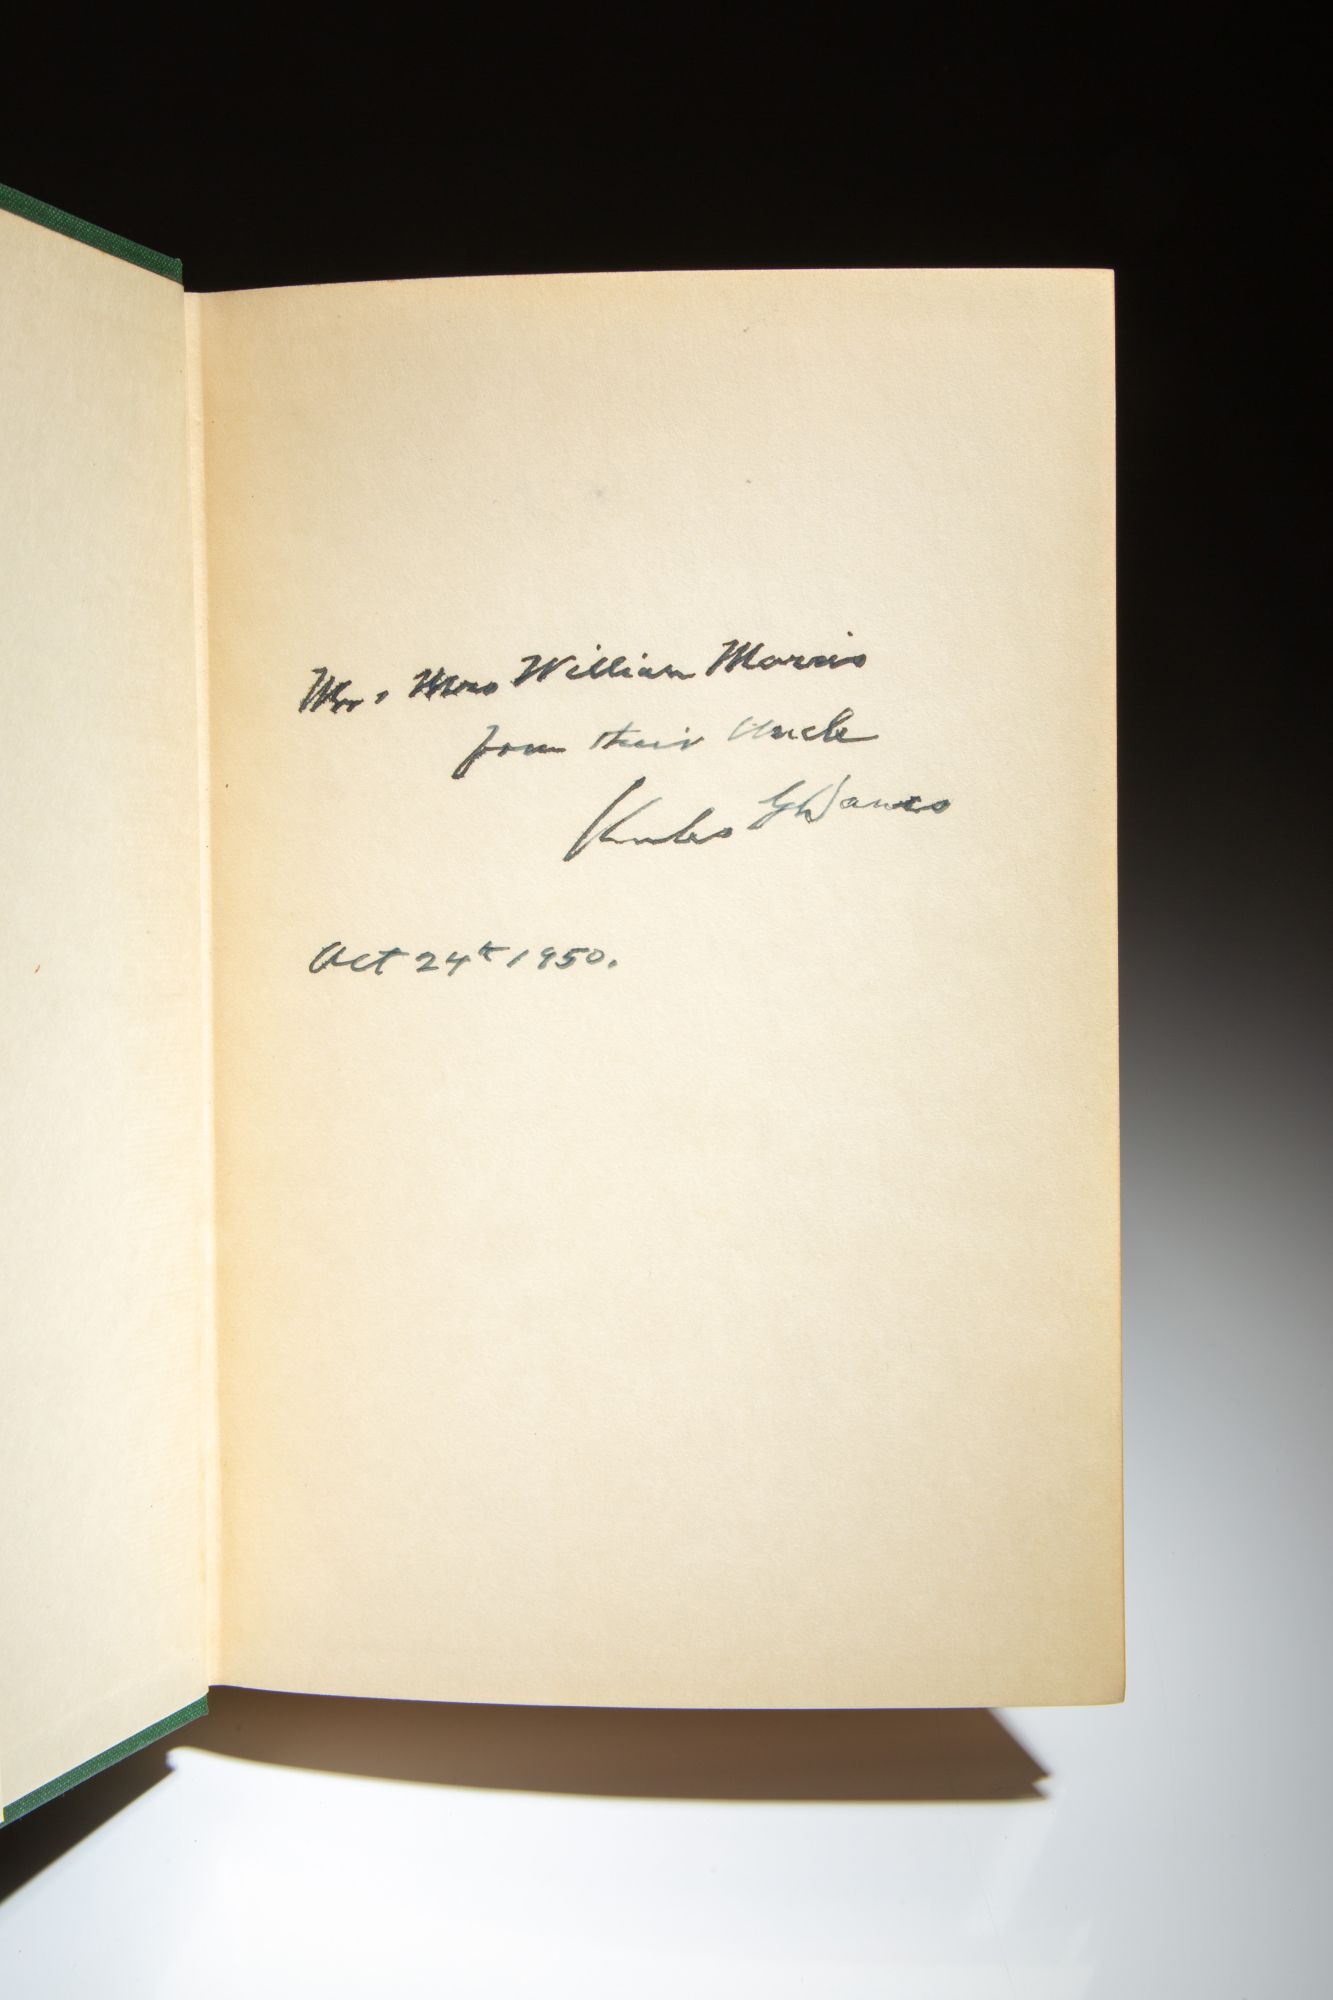 Mr. Mrs William Morris
from their Uncle
Charles G Dawes
Oct 24th 1950.